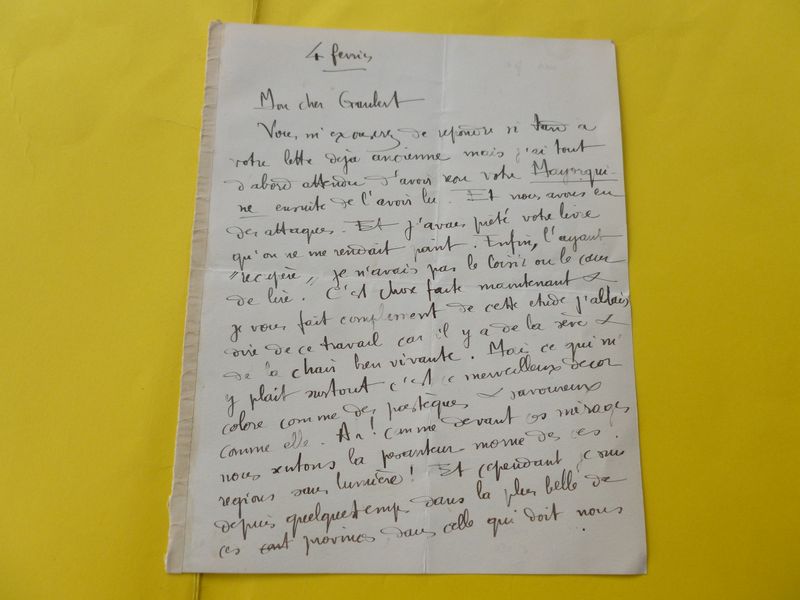 4 fevrier
Mon cher Gaubert
Vous m'excuserez de repondre si tard a
votre lette dejà ancienne mais j'ai tout
d'abord attendu d'avoir reçu votre Mayorqui-
ne ensuite de l'avoir lu. Et nous avons eu
des attaques. Et j'avais prété votre livre
qu'on ne me rendait point. Enfin, l'ayant
"recupéré" je n'avais pas le loisir ou le cœur
de lire. C'est chose faite maintenant &
je vous fait compliment de cette etude j'allais
dire de ce travail car il y a de la sève &
de la chair bien vivante. Mais ce qui m'
y plait surtout c'est ce merveilleux decor
coloré comme des pastèques & savoureux
comme elle. Ah! comme devant ces mirages
nous sentons la pesanteur morne de ces
regions sans lumière! Et cependant je suis
depuis quelques temps dans la plus belle de
ces provinces dans celle qui doit nous